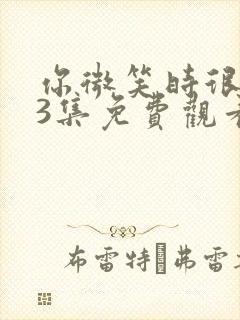 你微笑時很
3集免費觀
布雷特 弗雷